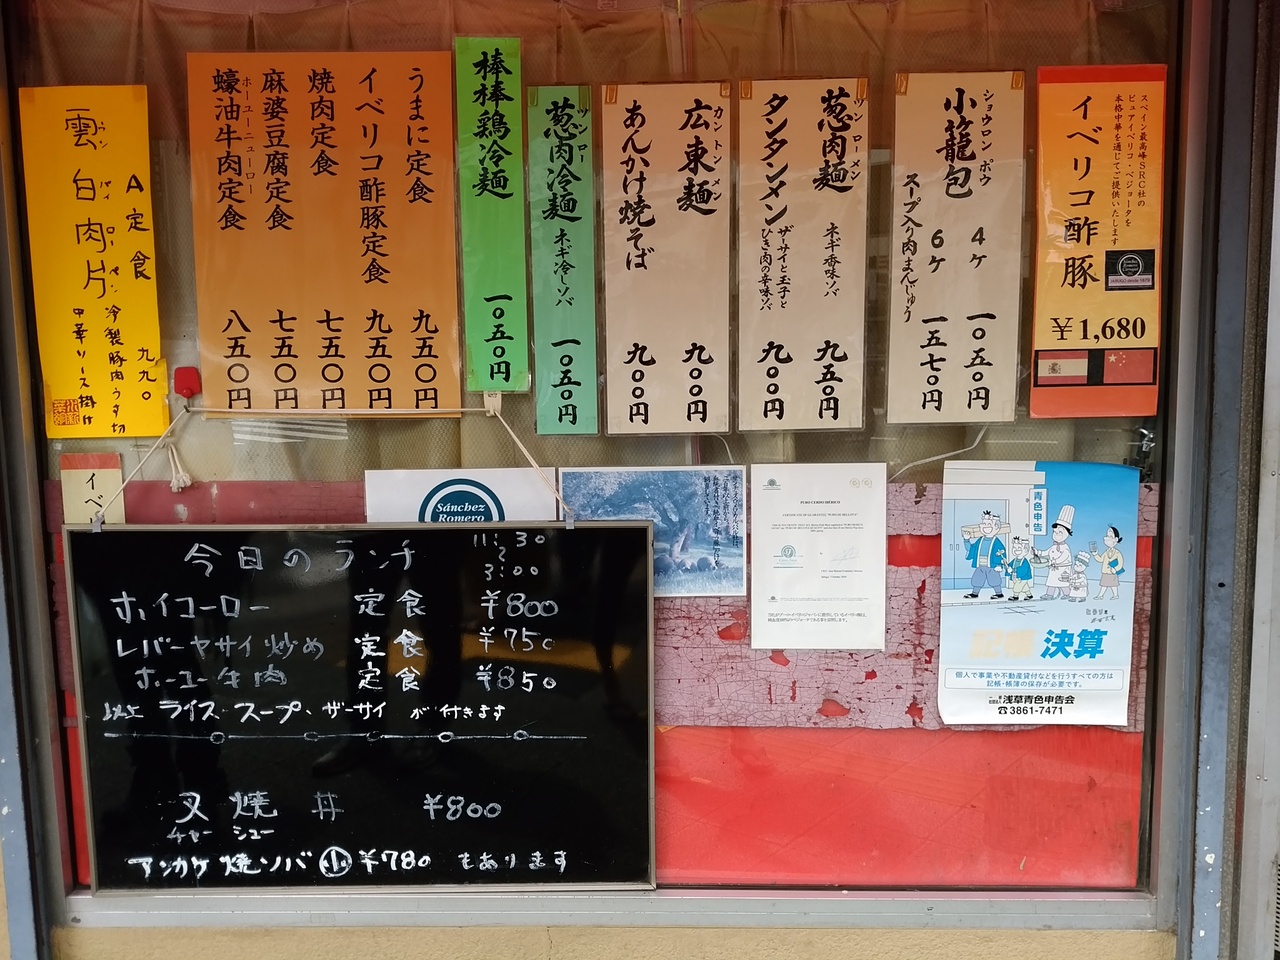 イベリコ酢豚
スペイン最高峰SRC社の
ピュアイベリコ・ベジョータを
本格中華を通じてご提供いたします
Sánchez
Romero
Carvajal
JABUGO desde 1879
￥1,680
ショウロンポウ
小籠包
スープ入り肉まんじゅう
4ケ 一〇五〇円
6ケ 一五七〇円
ツンローメン
葱肉麺 ネギ香味ソバ 九五〇円
タンタンメン ザーサイと玉子と
ひき肉の辛味ソバ 九〇〇円
カントンメン
広東麺 九〇〇円
あんかけ焼そば 九〇〇円
ツンロー
葱肉冷麺 ネギ冷しソバ 一〇五〇円
棒棒鶏冷麺 一〇五〇円
うまに定食 九五〇円
イベリコ酢豚定食 九五〇円
焼肉定食 七五〇円
麻婆豆腐定食 七五〇円
ホーユーニューロー
蠔油牛肉定食 八五〇円
A定食 九九〇
ウンパイローペン
雲白肉片
冷製豚肉うす切
中華ソース掛け
イベ
Sánchez
Romero
PURO CERDO IBÉRICO
青色申告
記帳 決算
個人で事業や不動産貸付などを行うすべての方は
記帳・帳簿の保存が必要です。
一般社団法人 浅草青色申告会
☎3861-7471
今日のランチ
11:30
〜
3:00
ホイコーロー 定食 ¥800
レバーヤサイ炒め 定食 ¥750
ホーユー牛肉 定食 ¥850
以上 ライス・スープ、ザーサイ が付きます
叉焼丼 ¥800
チャーシュー
アンカケ焼ソバ 小 ¥780 もあります